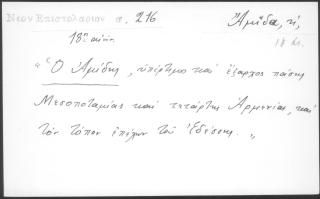 Νεον Επιστολαριον σ. 216 Ἄμιδα, ἡ,
18ος αἰών. 18 αι.
"Ὁ Ἀμίδης, ὑπέρτιμος καὶ ἔξαρχος πάσης
Μεσοποταμίας καὶ τετάρτης Ἀρμενίας, καὶ
τὸν τόπον ἐπέχων τοῦ Ἐδέσσης."